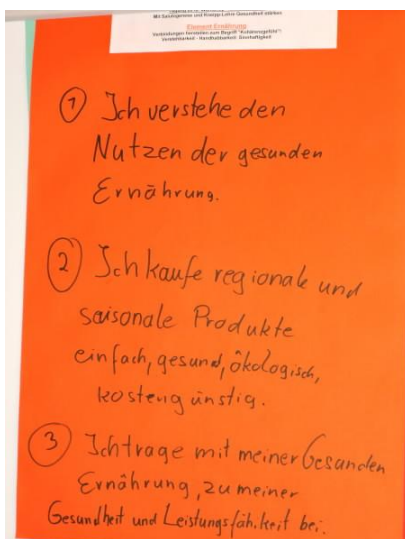 Mit Salutogenese und Kneipp-Lehre Gesundheit stärken
Element Ernährung
Verbindungen herstellen zum Begriff "Kohärenzgefühl":
Verstehbarkeit - Handhabbarkeit- Sinnhaftigkeit
① Ich verstehe den
Nutzen der gesunden
Ernährung.
② Ich kaufe regionale und
saisonale Produkte
einfach, gesund, ökologisch,
kostengünstig.
③ Ich trage mit meiner Gesunden
Ernährung, zu meiner
Gesundheit und Leistungsfähigkeit bei.